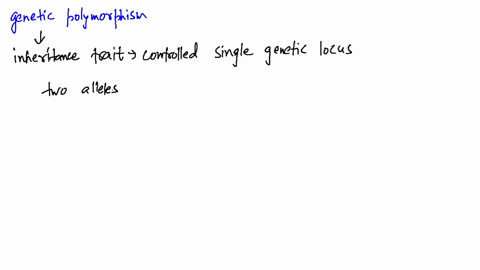 genetic polymorphism
↓
inheritance trait → controlled single genetic locus
two alleles